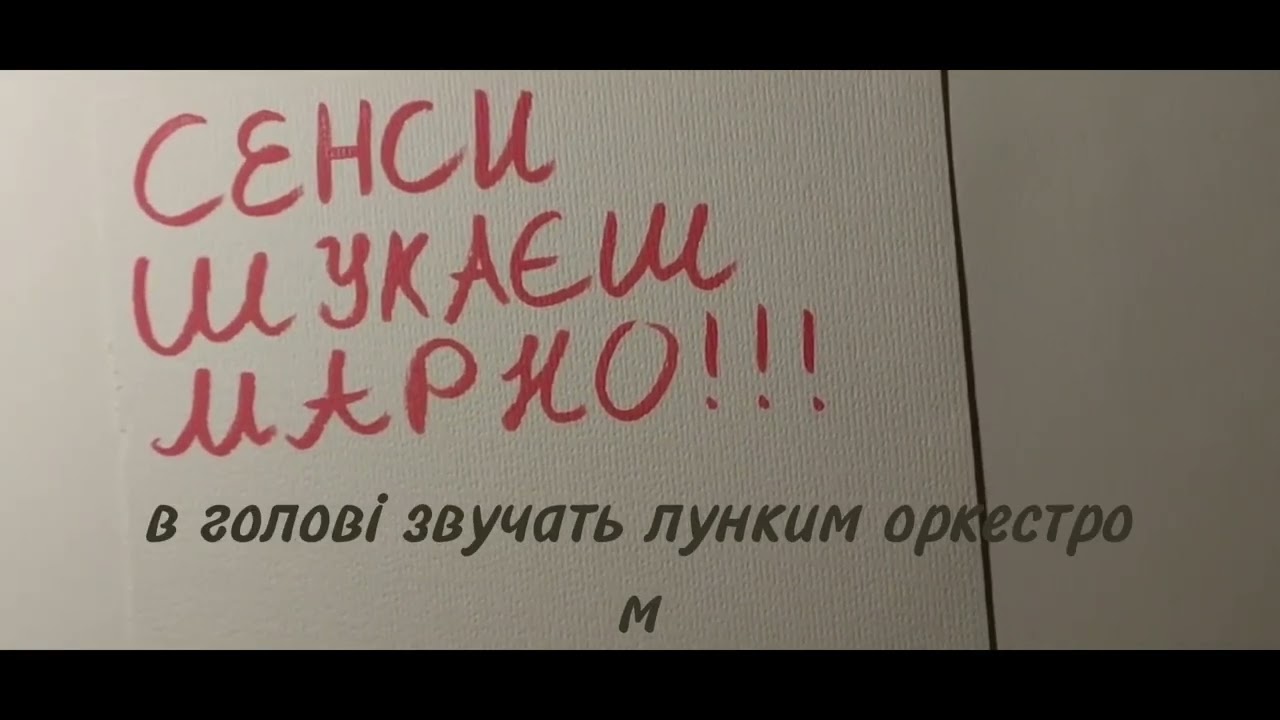 СЕНСИ
ШУКАЄШ
МАРНО!!!
в голові звучать лунким оркестро
м